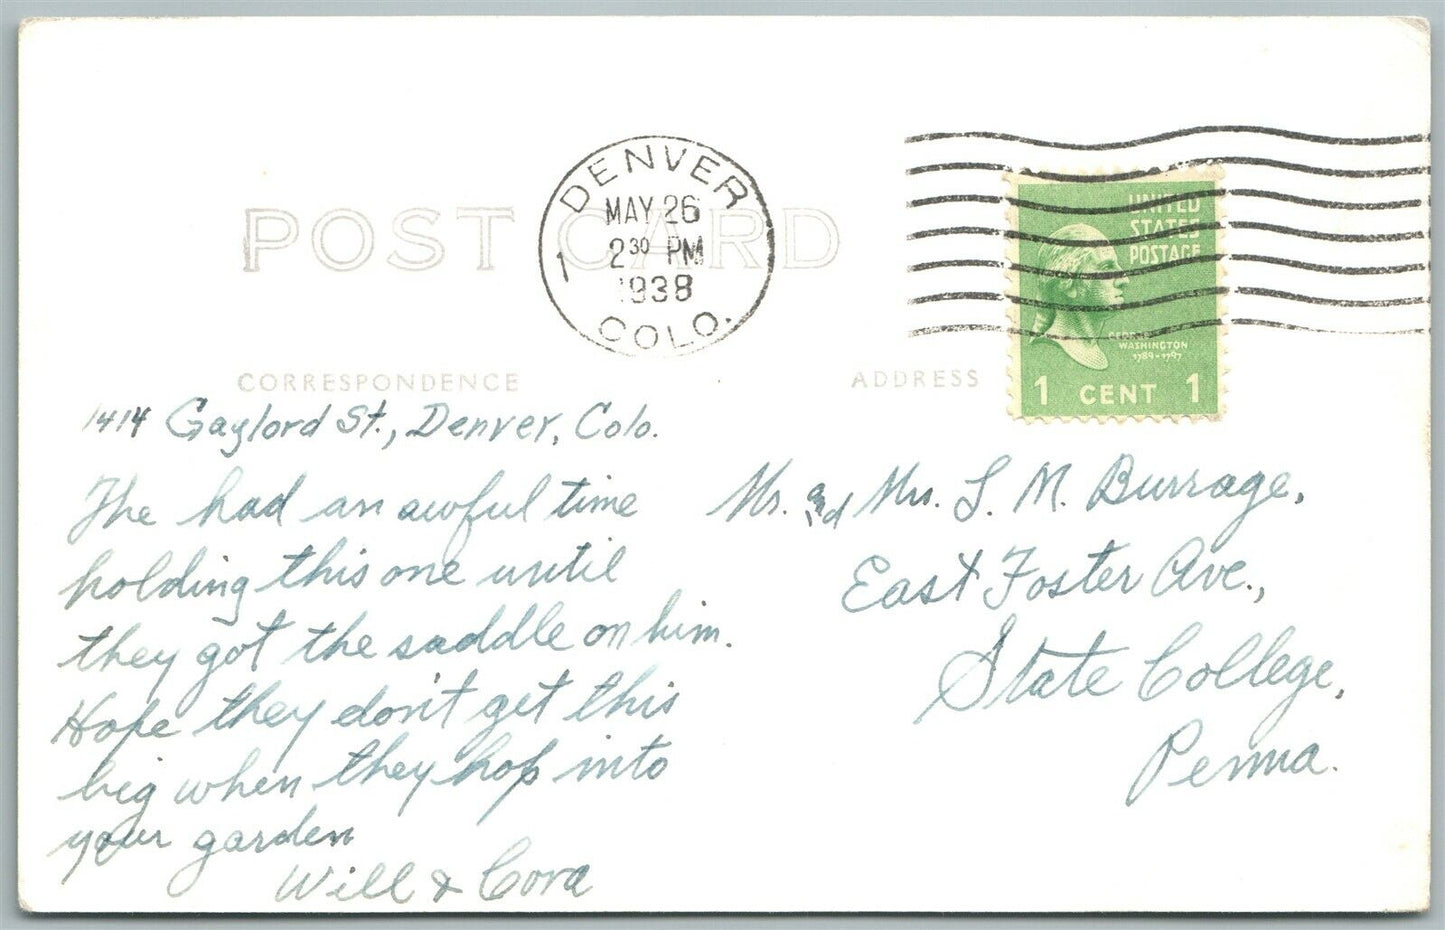 POST CARD
DENVER
MAY 26
2 30 PM
1938
1
COLO.
UNITED
STATES
POSTAGE
GEORGE
WASHINGTON
1789-1797
1 CENT 1
CORRESPONDENCE
ADDRESS
1414 Gaylord St., Denver, Colo.
The had an awful time
holding this one until
they got the saddle on him.
Hope they don't get this
big when they hop into
your garden
Will & Cora
Mr. and Mrs. J. M. Burrage,
East Foster Ave.,
State College,
Penna.